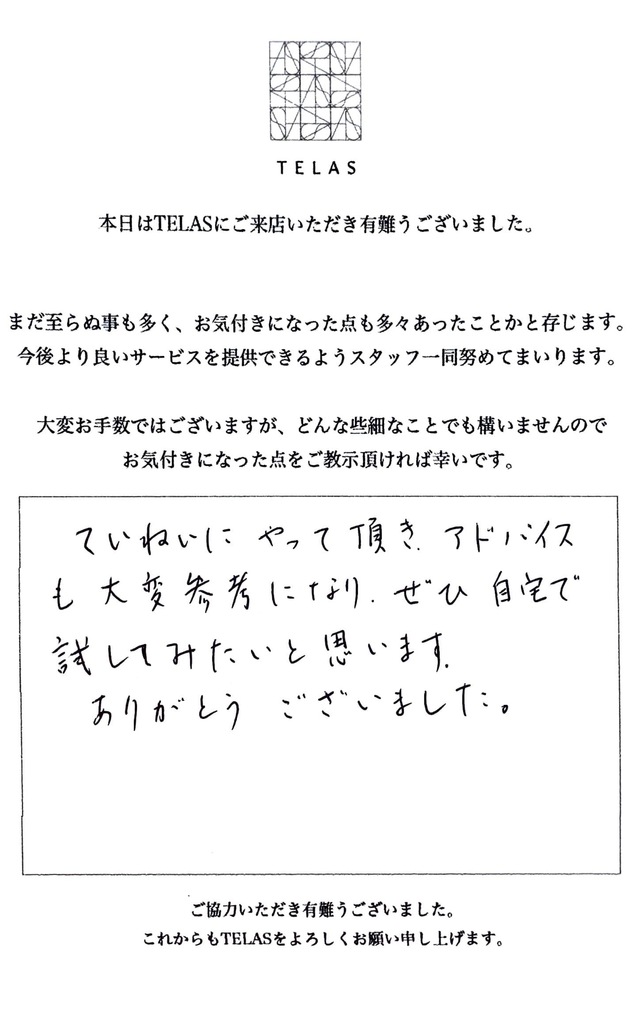 TELAS
本日はTELASにご来店いただき有難うございました。
まだ至らぬ事も多く、お気付きになった点も多々あったことかと存じます。
今後より良いサービスを提供できるようスタッフ一同努めてまいります。
大変お手数ではございますが、どんな些細なことでも構いませんので
お気付きになった点をご教示頂ければ幸いです。
ていねいに やって頂き、アドバイス
も大変参考になり、ぜひ自宅で
試してみたいと思います。
ありがとう ございました。
ご協力いただき有難うございました。
これからもTELASをよろしくお願い申し上げます。